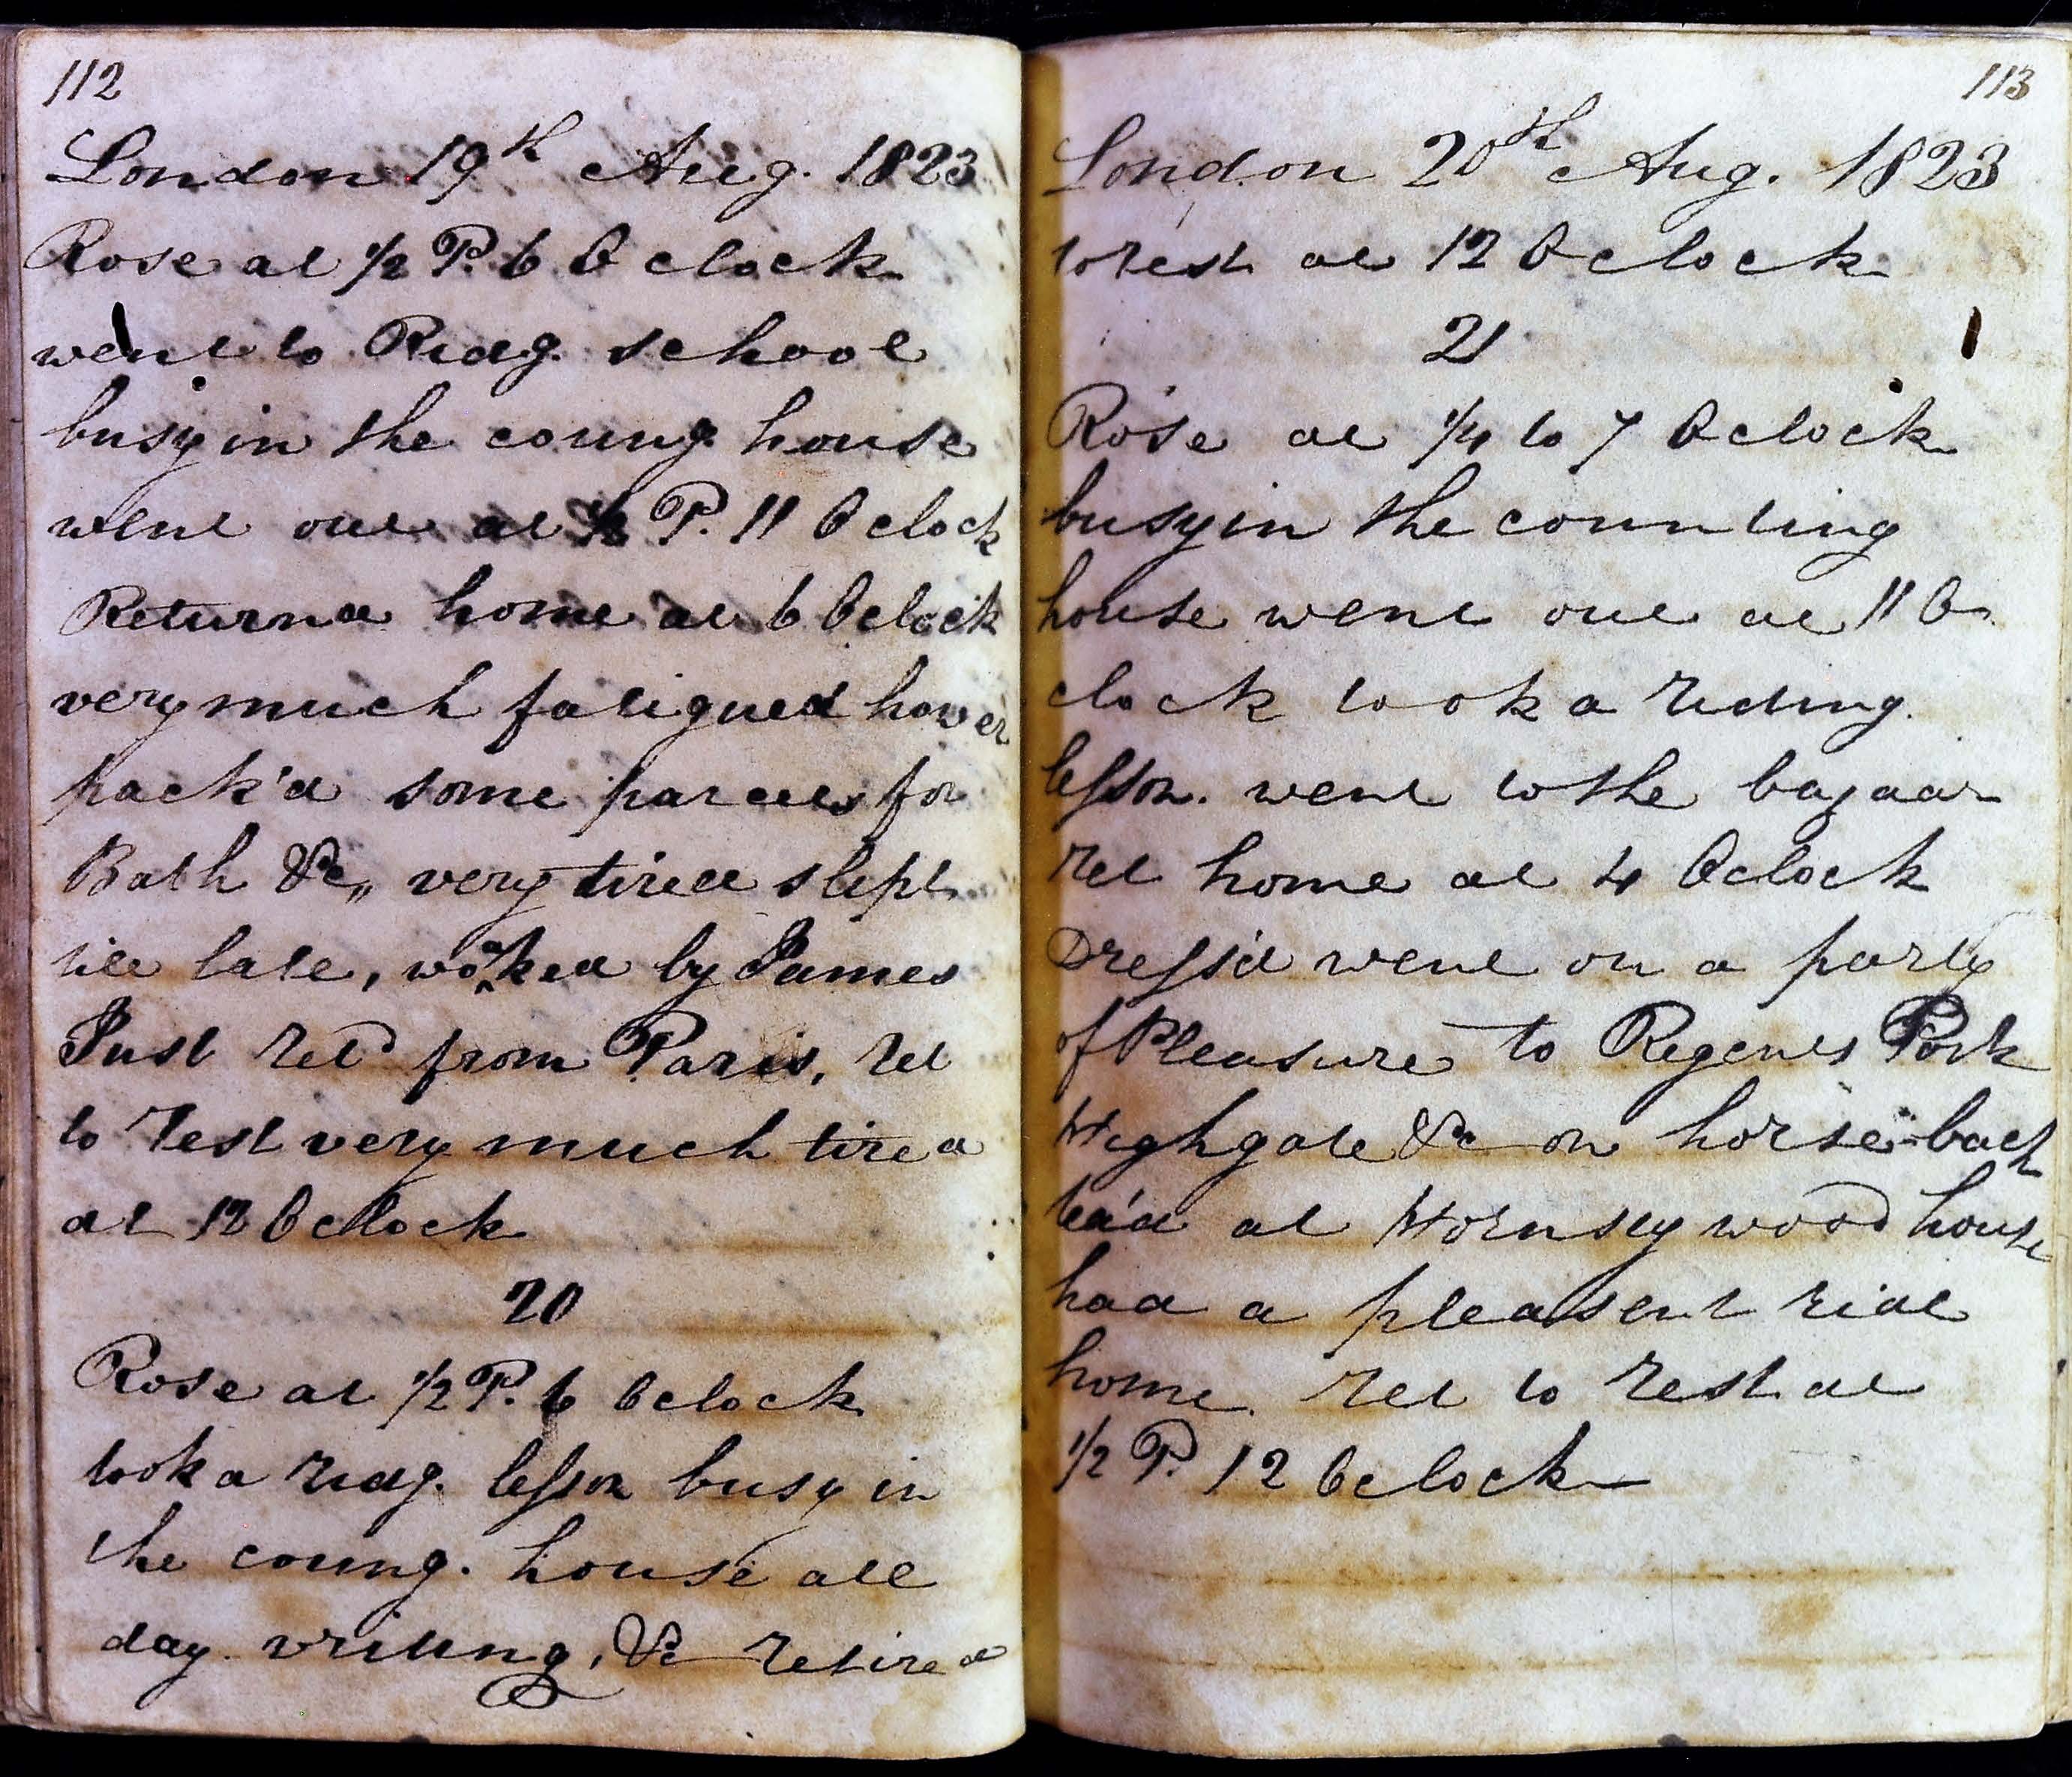 112
London 19th Aug. 1823
Rose at 1/2 P. 6 O clock
went to Ridg. school
busy in the coung. house
went out at 1/2 P. 11 O clock
Returnd home at 6 Oclock
very much fatigued hower
pack'd some parcels for
Bath &c,, very tired slept
till late, woked by James
Just retd from Paris, ret
to rest very much tired
at 12 Oclock
20
Rose at 1/2 P. 6 Oclock
took a ridg. lesson busy in
the coung. house all
day writing, &c retired
113
London 20th Aug. 1823
to rest at 12 O clock
21
Rose at 1/4 to 7 O clock
busy in the counting
house went out at 11 O
clock took a riding
lesson. went to the bazaar
ret home at 4 Oclock
Dress'd went on a party
of Pleasure to Regents Park
Highgate &c on horse-back
tea'd at Hornsey wood house
had a pleasent ride
home. ret to rest at
1/2 P. 12 Oclock